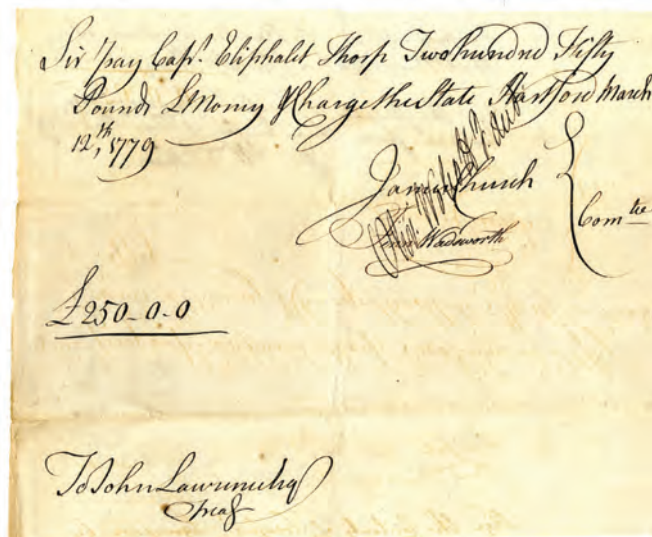 Sir pay Capt. Eliphalet Thorp Two hundred Fifty
Pounds LMoney & Charge the State Hartford March
12th, 1779
James Church
Wadsworth
Comtee
£250-0-0
To John Lawrence Esq
Treas